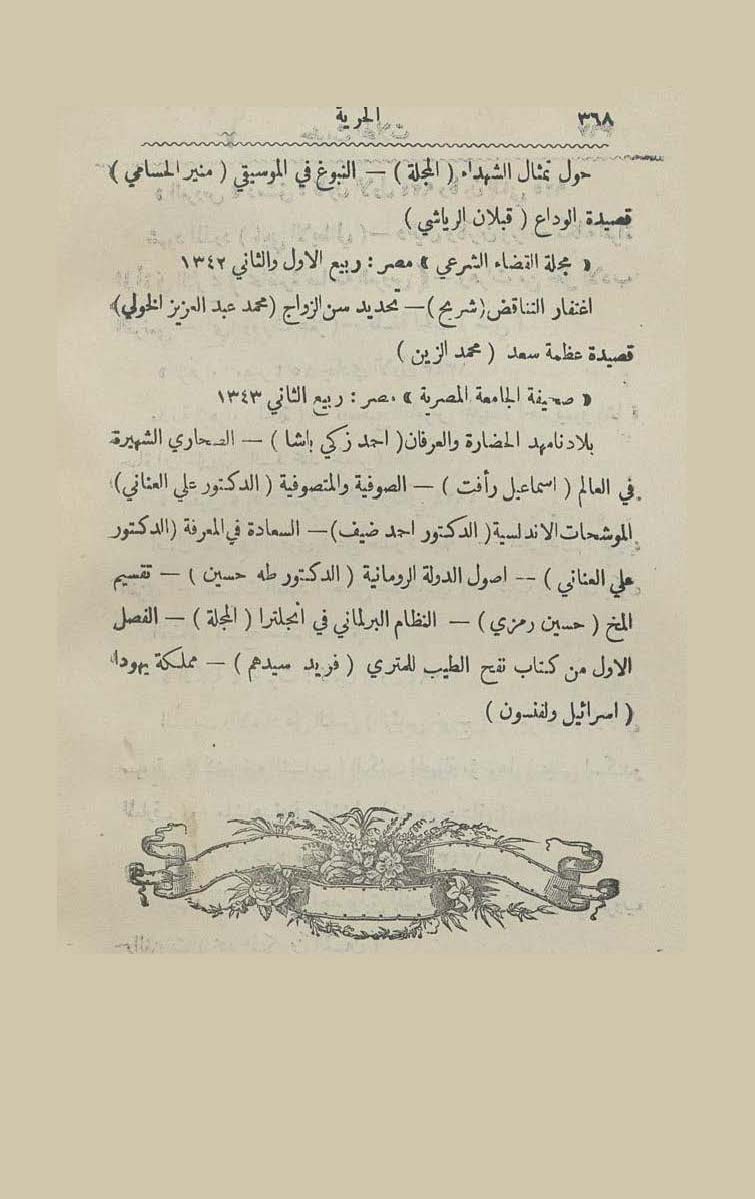 ٣٦٨ الحرية
حول تمثال الشهداء ( المجلة ) — النبوغ في الموسيقي ( منير الحسامي )
قصيدة الوداع ( قبلان الرياشي )
« مجلة القضاء الشرعي » مصر : ربيع الاول والثاني ١٣٤٢
اغتفار التناقض ( شريح ) — تحديد سن الزواج ( محمد عبد العزيز الخولي )
قصيدة عظمة سعد ( محمد الزين )
« صحيفة الجامعة المصرية » مصر : ربيع الثاني ١٣٤٣
بلادنا مهد الحضارة والعرفان ( احمد زكي باشا ) — الصحاري الشهيرة
في العالم ( اسماعيل رأفت ) — الصوفية والمتصوفية ( الدكتور علي العناني )
الموشحات الاندلسية ( الدكتور احمد ضيف ) — السعادة في المعرفة ( الدكتور
علي العناني ) — اصول الدولة الرومانية ( الدكتور طه حسين ) — تقسيم
المخ ( حسين رمزي ) — النظام البرلماني في انجلترا ( المجلة ) — الفصل
الاول من كتاب نفح الطيب للمتري ( فريد سيدهم ) — مملكة يهودا
( اسرائيل ولفنسون )